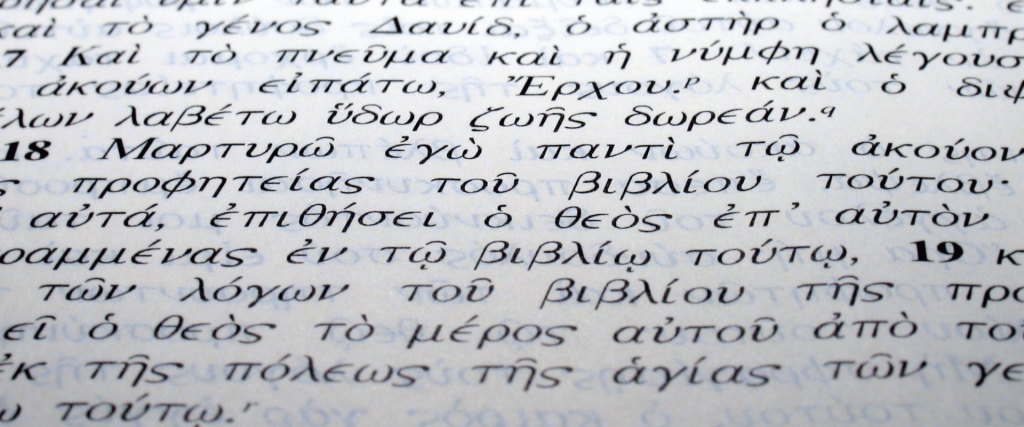 καὶ τὸ γένος Δαυίδ, ὁ ἀστὴρ ὁ λαμπρ
7 Καὶ τὸ πνεῦμα καὶ ἡ νύμφη λέγουσ
ἀκούων εἰπάτω, Ἔρχου.ᵖ καὶ ὁ διψ
έλων λαβέτω ὕδωρ ζωῆς δωρεάν.q
18 Μαρτυρῶ ἐγὼ παντὶ τῷ ἀκούον
ς προφητείας τοῦ βιβλίου τούτου·
αὐτά, ἐπιθήσει ὁ θεὸς ἐπ’ αὐτὸν
ραμμένας ἐν τῷ βιβλίῳ τούτῳ, 19 κ
τῶν λόγων τοῦ βιβλίου τῆς προ
εῖ ὁ θεὸς τὸ μέρος αὐτοῦ ἀπὸ το
ἐκ τῆς πόλεως τῆς ἁγίας τῶν γε
ῳ τούτῳ.ʳ